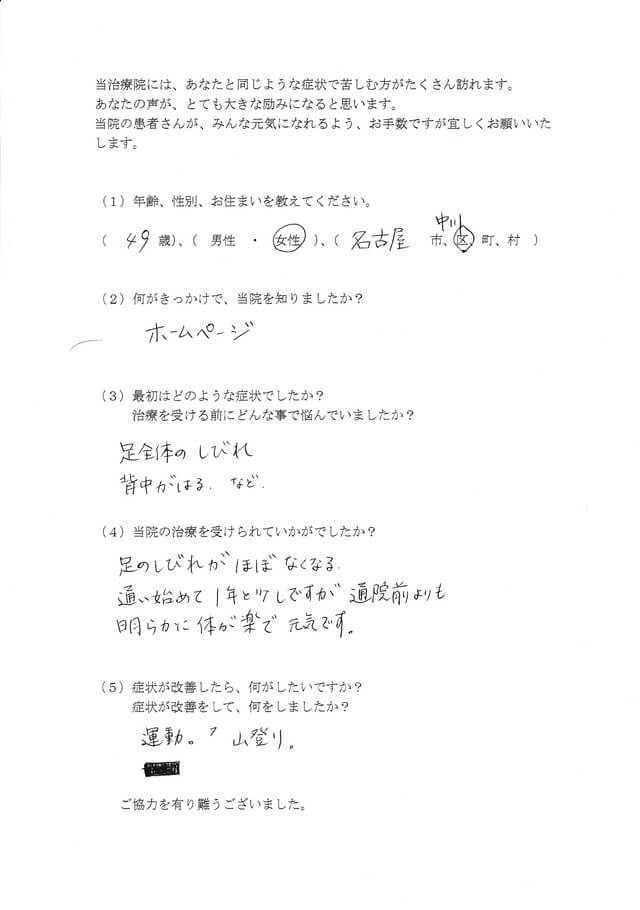 当治療院には、あなたと同じような症状で苦しむ方がたくさん訪れます。
あなたの声が、とても大きな励みになると思います。
当院の患者さんが、みんな元気になれるよう、お手数ですが宜しくお願いいた
します。
（１）年齢、性別、お住まいを教えてください。
中川
（ 49 歳）、（ 男性 ・ 女性 ）、（ 名古屋 市、区、町、村 ）
（２）何がきっかけで、当院を知りましたか？
ホームページ
（３）最初はどのような症状でしたか？
治療を受ける前にどんな事で悩んでいましたか？
足全体のしびれ
背中がはる. など.
（４）当院の治療を受けられていかがでしたか？
足のしびれがほぼなくなる.
通い始めて1年と少しですが通院前よりも
明らかに体が楽で元気です。
（５）症状が改善したら、何がしたいですか？
症状が改善をして、何をしましたか？
運動。 山登り。
ご協力を有り難うございました。